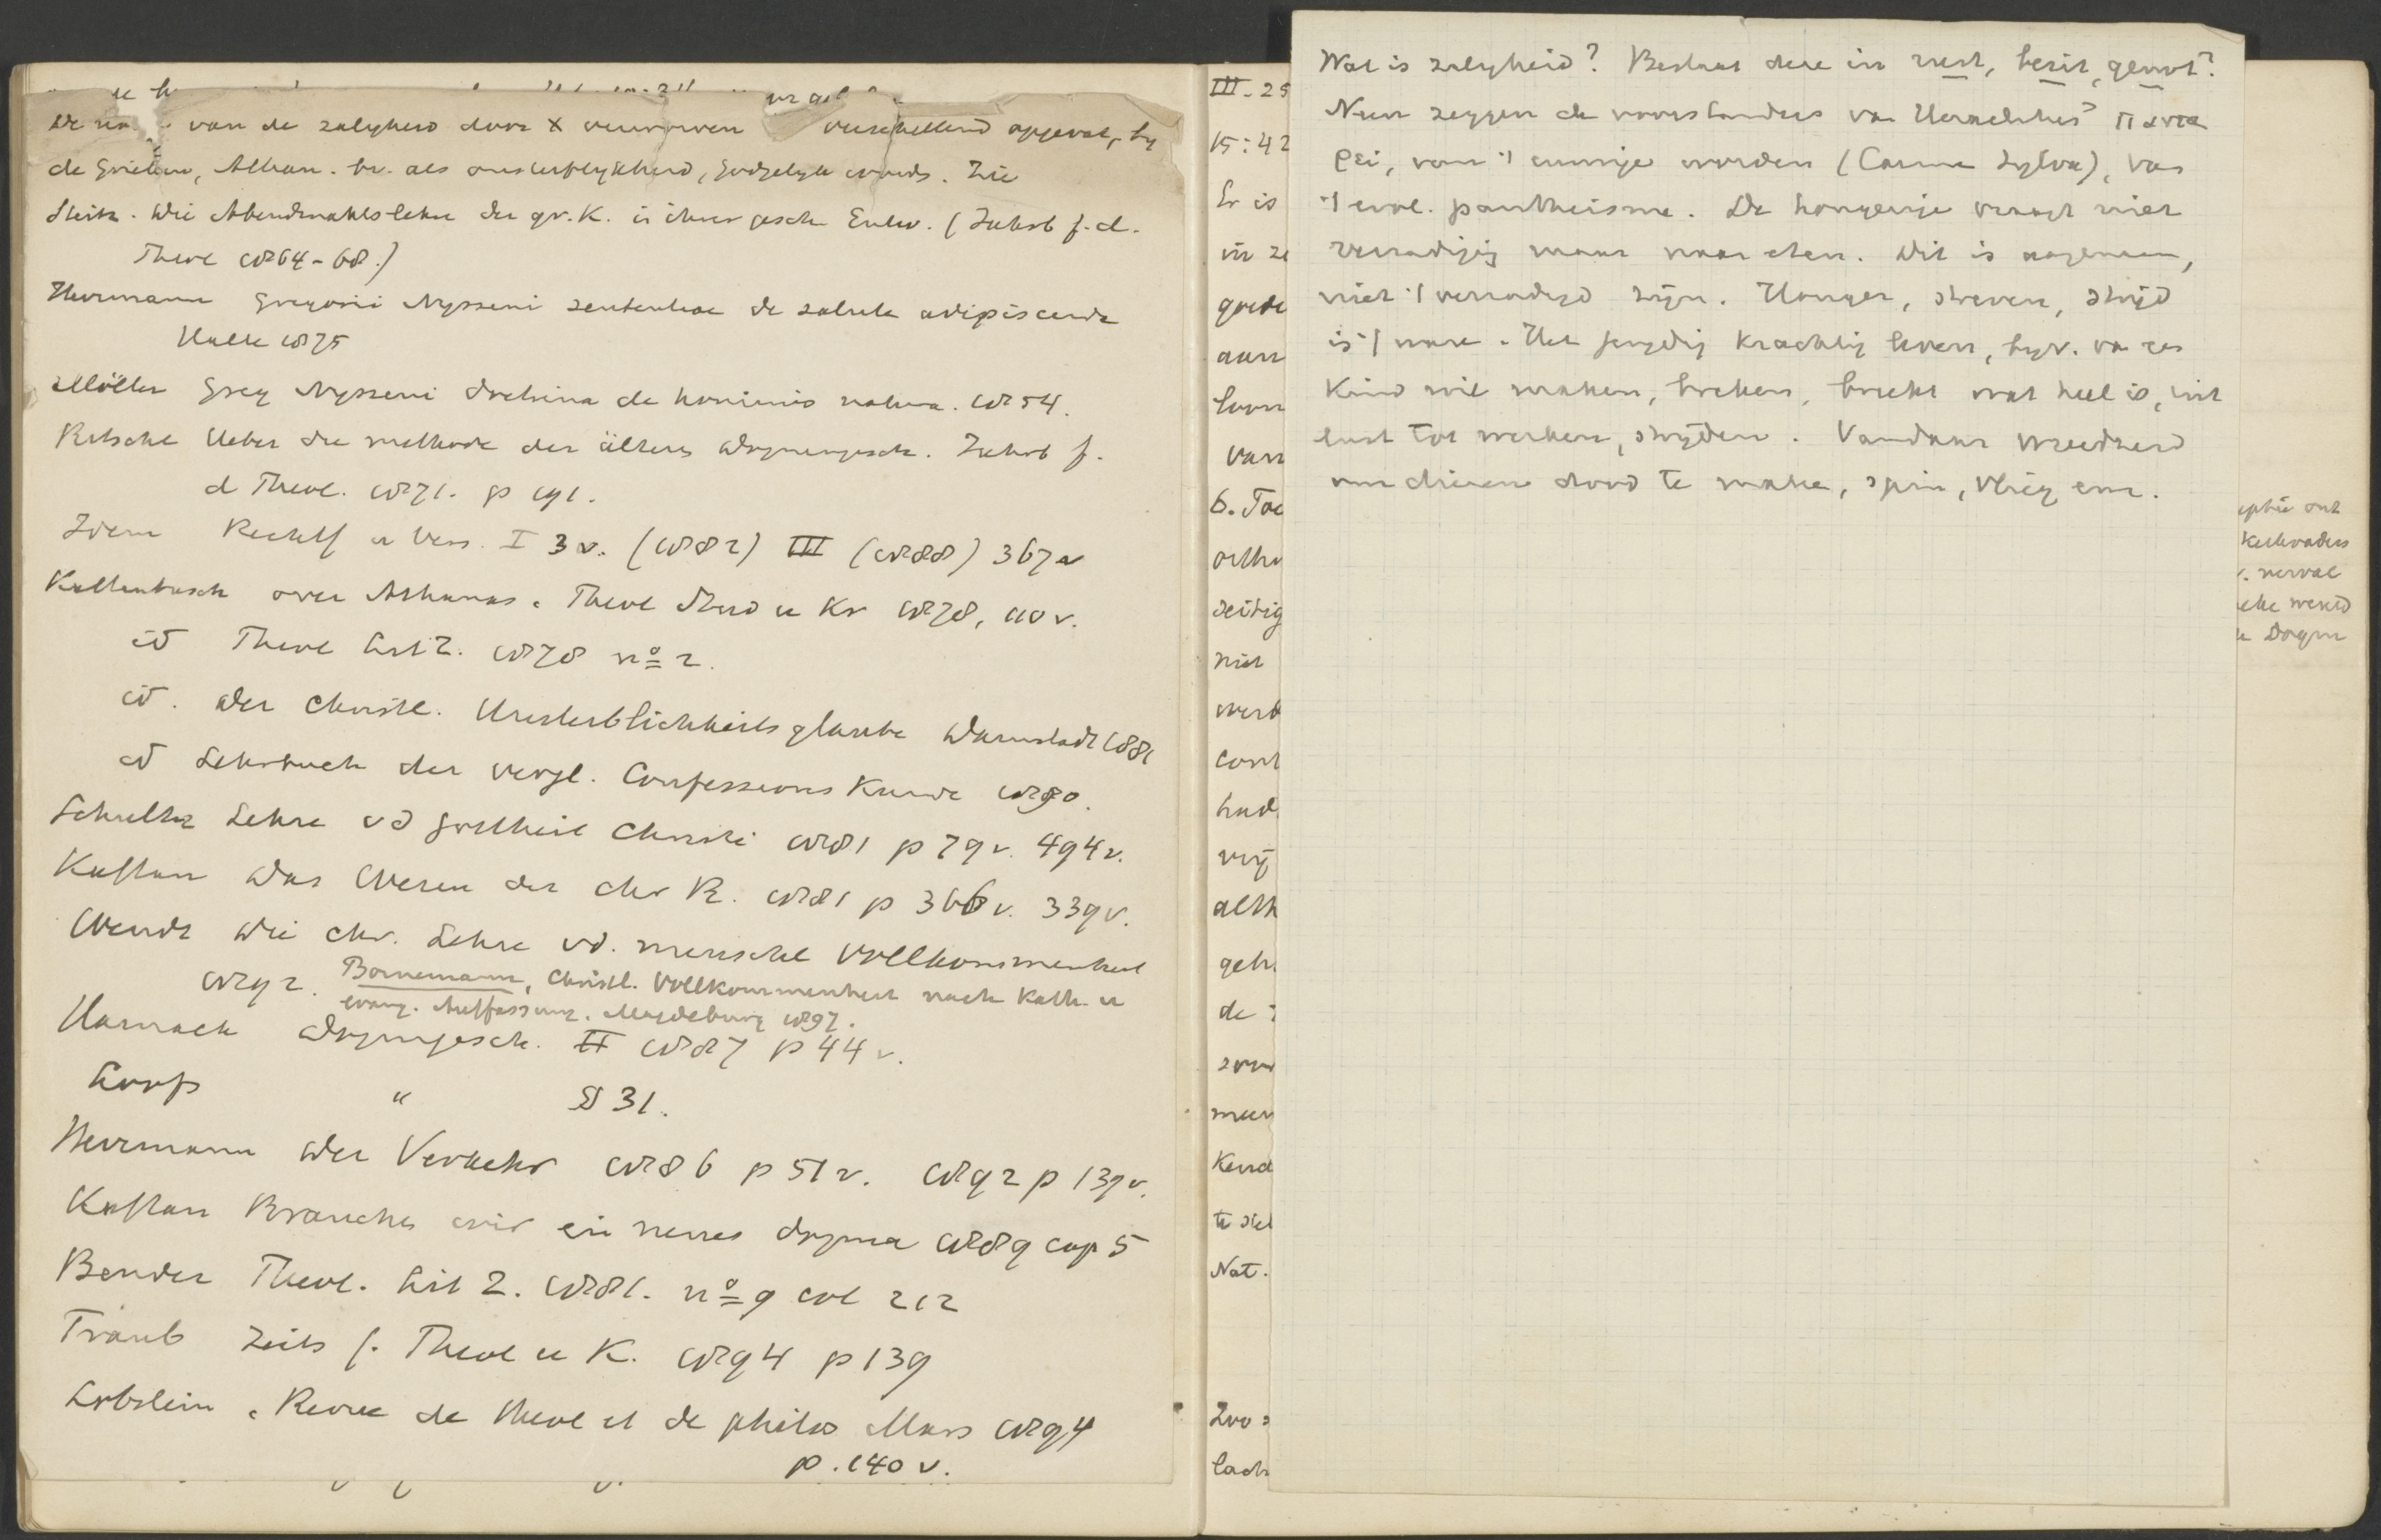 van de zalighd door X verworven verschillend opgevat, by
de Grieken, Athan. bv. als onsterflykheid, godgelyk words. Zie
Steitz. Die Abendmahlslehre der gr. K. in ihrer gesch Entw. (Jahrb f. d.
Theol 1864-68.)
Herrmann Gregorii Nysseni sententiae de salute adipiscenda
Halle 1875
Möller Greg Nysseni doctrina de hominis natura. 1854.
Ritschl Ueber die methode der älteren Dogmengesch. Jahrb f.
d Theol. 1871. p 191.
Idem Rechtf u Vers. I 3 v. (1882) III (1888) 367 v
Kattenbusch over Athanas. Theol Stud u Kr 1878, 110 v.
id Theol Lit Z. 1878 no 2.
id. Der Christl. Unsterblichkeitsglaube Darmstadt 1881
id Lehrbuch der vergl. Confessions Kunde 1890.
Schultz Lehre v d Gottheit Christi 1881 p 79 v. 494 v.
Kaftan Das Wesen der chr R. 1881 p 366 v. 339 v.
Wendt Die chr. Lehre v d. menschl Vollkommenheit
Bornemann, Christl. Vollkommenheit nach Kath. u
evang. Auffassung. Magdeburg 1897.
Harnack Dogmgesch. II 1887 p 44 v.
Loofs " § 31.
Herrmann Der Verkehr 1886 p 51 v. 1892 p 139 v.
Kaftan Brauchen wir ein neues dogma 1889 cap 5
Bender Theol. Lit Z. 1881. no 9 col 212
Traub Zeits f. Theol u K. 1894 p 139
Lobstein. Revue de theol et de philos Mars 1894
p. 140 v.
III-25
15:42
Er is
in ze
goede
aan
loon
van
6. Toe
ortho
zeitig
niet
werk
cont
had
vrij
alth
geh
de
meer
Kend
te stel
Nat.
Zoo
Wat is zalygheid? Bestaat deze in rust, bezit, genot?
Neen zeggen de voorstanders van Heraclitus' παντα
ρει, van 't eeuwige worden (Carmen Sylva), van
't evol. pantheisme. De hongerige vraagt niet
verzadiging maar naar eten. Dit is aangenaam,
niet 't verzadigd zijn. Honger, streven, strijd
is 't ware. Het jeugdig krachtig leven, byv. van een
kind wil maken, breken, breekt wat heel is, uit
lust tot werken, strijden. Vandaar wreedheid
om dieren dood te maken, spin, vlieg enz.
ophie ont
Kerkvaders
. verval
sche wereld
Dogm